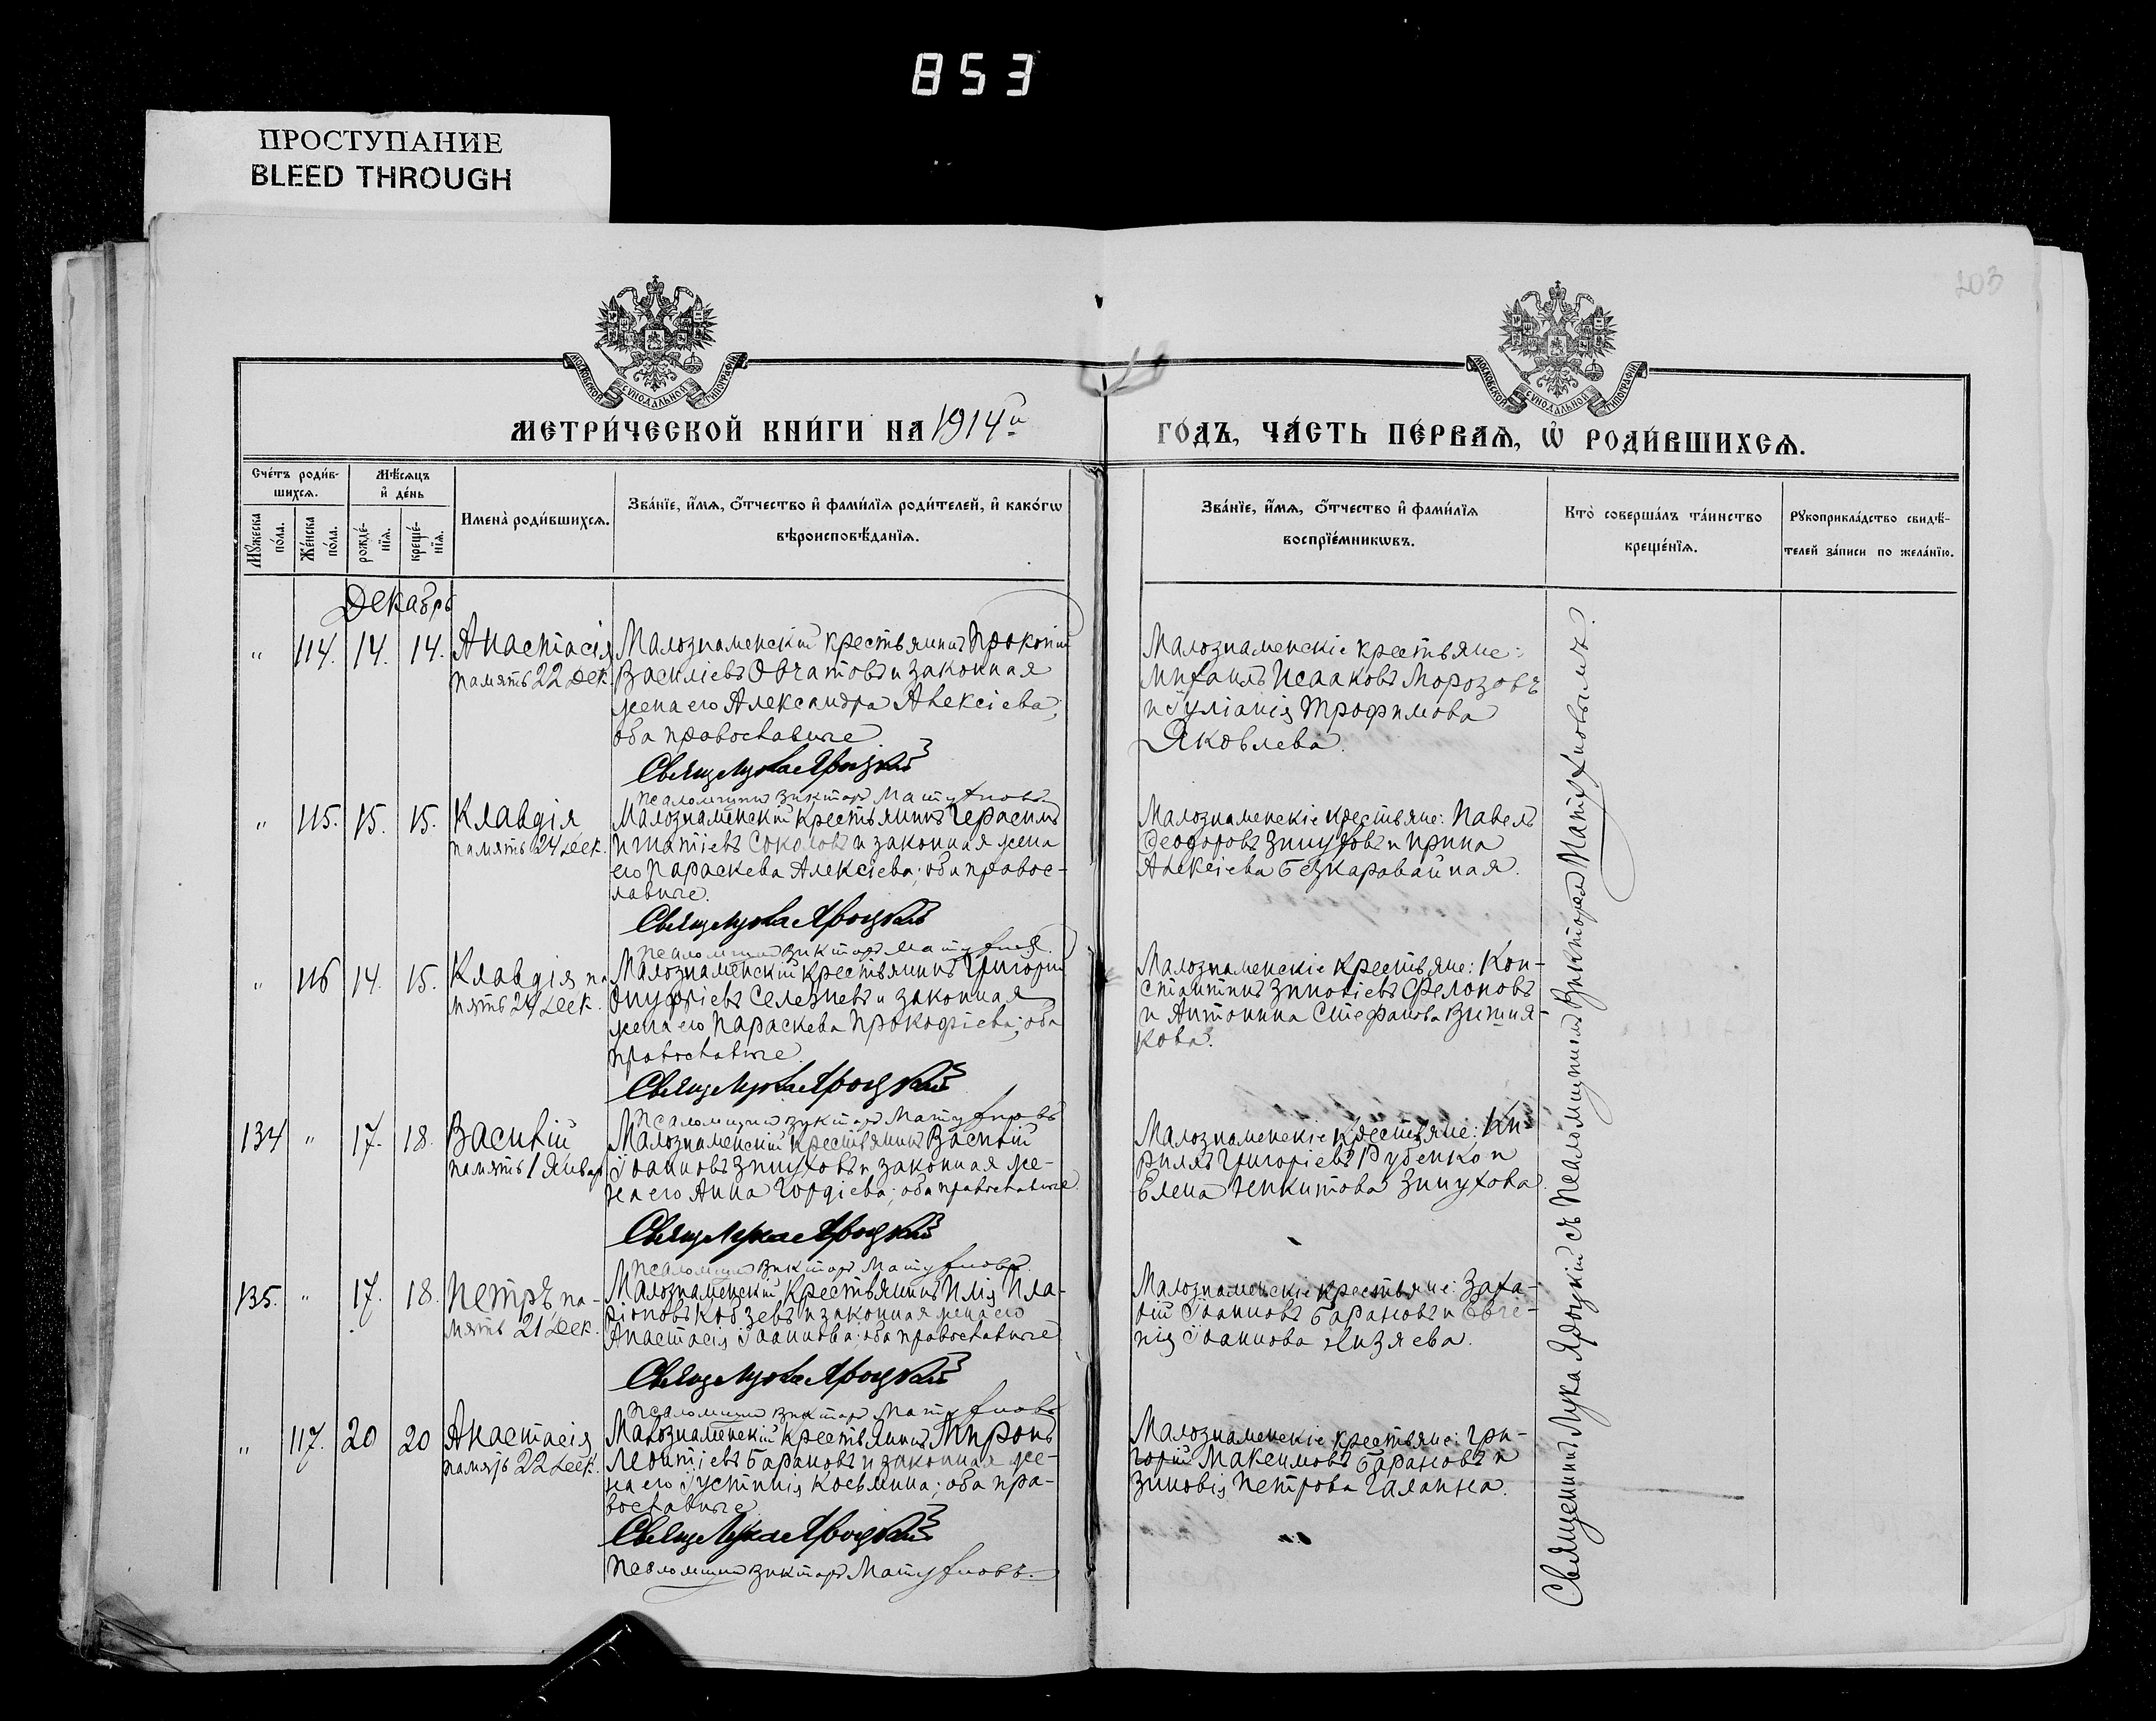 853
ПРОСТУПАНИЕ
BLEED THROUGH
203
МОСКОВСКОЙ СѴНОДАЛЬНОЙ ТИПОГРАФІИ
МОСКОВСКОЙ СѴНОДАЛЬНОЙ ТИПОГРАФІИ
МЕТРИ́ЧЕСКОЙ КНИ́ГИ НА 1914й
ГО́ДЪ, ЧА́СТЬ ПЕ́РВАѦ, Ѽ РОДИ́ВШИХСѦ.
Сче́тъ роди́в-
шихсѧ.
Мѣ́сѧцъ
и҆ де́нь
Мꙋ́жеска
по́ла.
Же́нска
по́ла.
рожде́-
нїѧ.
креще́-
нїѧ.
Имена̀ роди́вшихсѧ.
Зва́нїе, и҆́мѧ, ѻ҆́тчество и҆ фами́лїѧ роди́телей, и҆ како́гѡ
вѣроисповѣ́данїѧ.
Зва́нїе, и҆́мѧ, ѻ҆́тчество и҆ фами́лїѧ
воспрїе́мникѡвъ.
Кто̀ соверша́лъ та́инство
креще́нїѧ.
Рꙋкоприкла́дство свидѣ́-
телей за́писи по жела́нїю.
Декабрь
" 114. 14. 14. Анастасія
память 22 Дек.
Малознаменскій крестьянинъ Прокопій
Василіевъ Овчатовъ и законная
жена его Александра Алексіева;
оба православные
Свящ Лука Яроцкій
Псаломщикъ Викторъ Матухновъ
Малознаменскіе крестьяне:
Михаилъ Исааковъ Морозовъ
и Іуліанія Трофимова
Яковлева.
" 115. 15. 15. Клавдія
память 24 Дек.
Малознаменскій крестьянинъ Герасимъ
Игнатіевъ Соколовъ и законная жена
его Параскева Алексіева; оба правос-
лавные.
Свящ Лука Яроцкій
Псаломщикъ Викторъ Матухновъ
Малознаменскіе крестьяне: Павелъ
Феодоровъ Зинуховъ и Ирина
Алексіева Безкаравайная.
" 116 14. 15. Клавдія па
мять 24 Дек.
Малознаменскій крестьянинъ Григорій
Онуфріевъ Селезневъ и законная
жена его Параскева Прокофіева; оба
православные
Свящ Лука Яроцкій
Псаломщикъ Викторъ Матухновъ
Малознаменскіе крестьяне: Кон-
стантинъ Зиновіевъ Филоновъ
и Антонина Стефанова Витня-
кова.
134 " 17. 18. Василій
память 1 Январ
Малознаменскій крестьянинъ Василій
Іоанновъ Зинуховъ и законная же-
на его Анна Гордіева; оба православные
Свящ Лука Яроцкій
Псаломщикъ Викторъ Матухновъ
Малознаменскіе крестьяне: Ки-
риллъ Григоріевъ Рубенко и
Елена Никитова Зинухова
135. " 17. 18. Петръ па-
мять 21 Дек.
Малознаменскій крестьянинъ Илія Ила-
ріоновъ Кобзевъ и законная жена его
Анастасія Іоаннова; оба православные
Свящ Лука Яроцкій
Псаломщикъ Викторъ Матухновъ
Малознаменскіе крестьяне: Заха-
рій Іоанновъ Барановъ и Евге-
нія Іоаннова Низяева.
" 117. 20 20 Анастасія
память 22 Дек.
Малознаменскій крестьянинъ Миронъ
Леонтіевъ Барановъ и законная же-
на его Іустинія Косьмина; оба пра-
вославные
Свящ Лука Яроцкій
Псаломщикъ Викторъ Матухновъ
Малознаменскіе крестьяне: Гри-
горій Максимовъ Барановъ и
Зиновія Петрова Галанха.
Священникъ Лука Яроцкій съ Псаломщикомъ Викторомъ Матухновымъ.